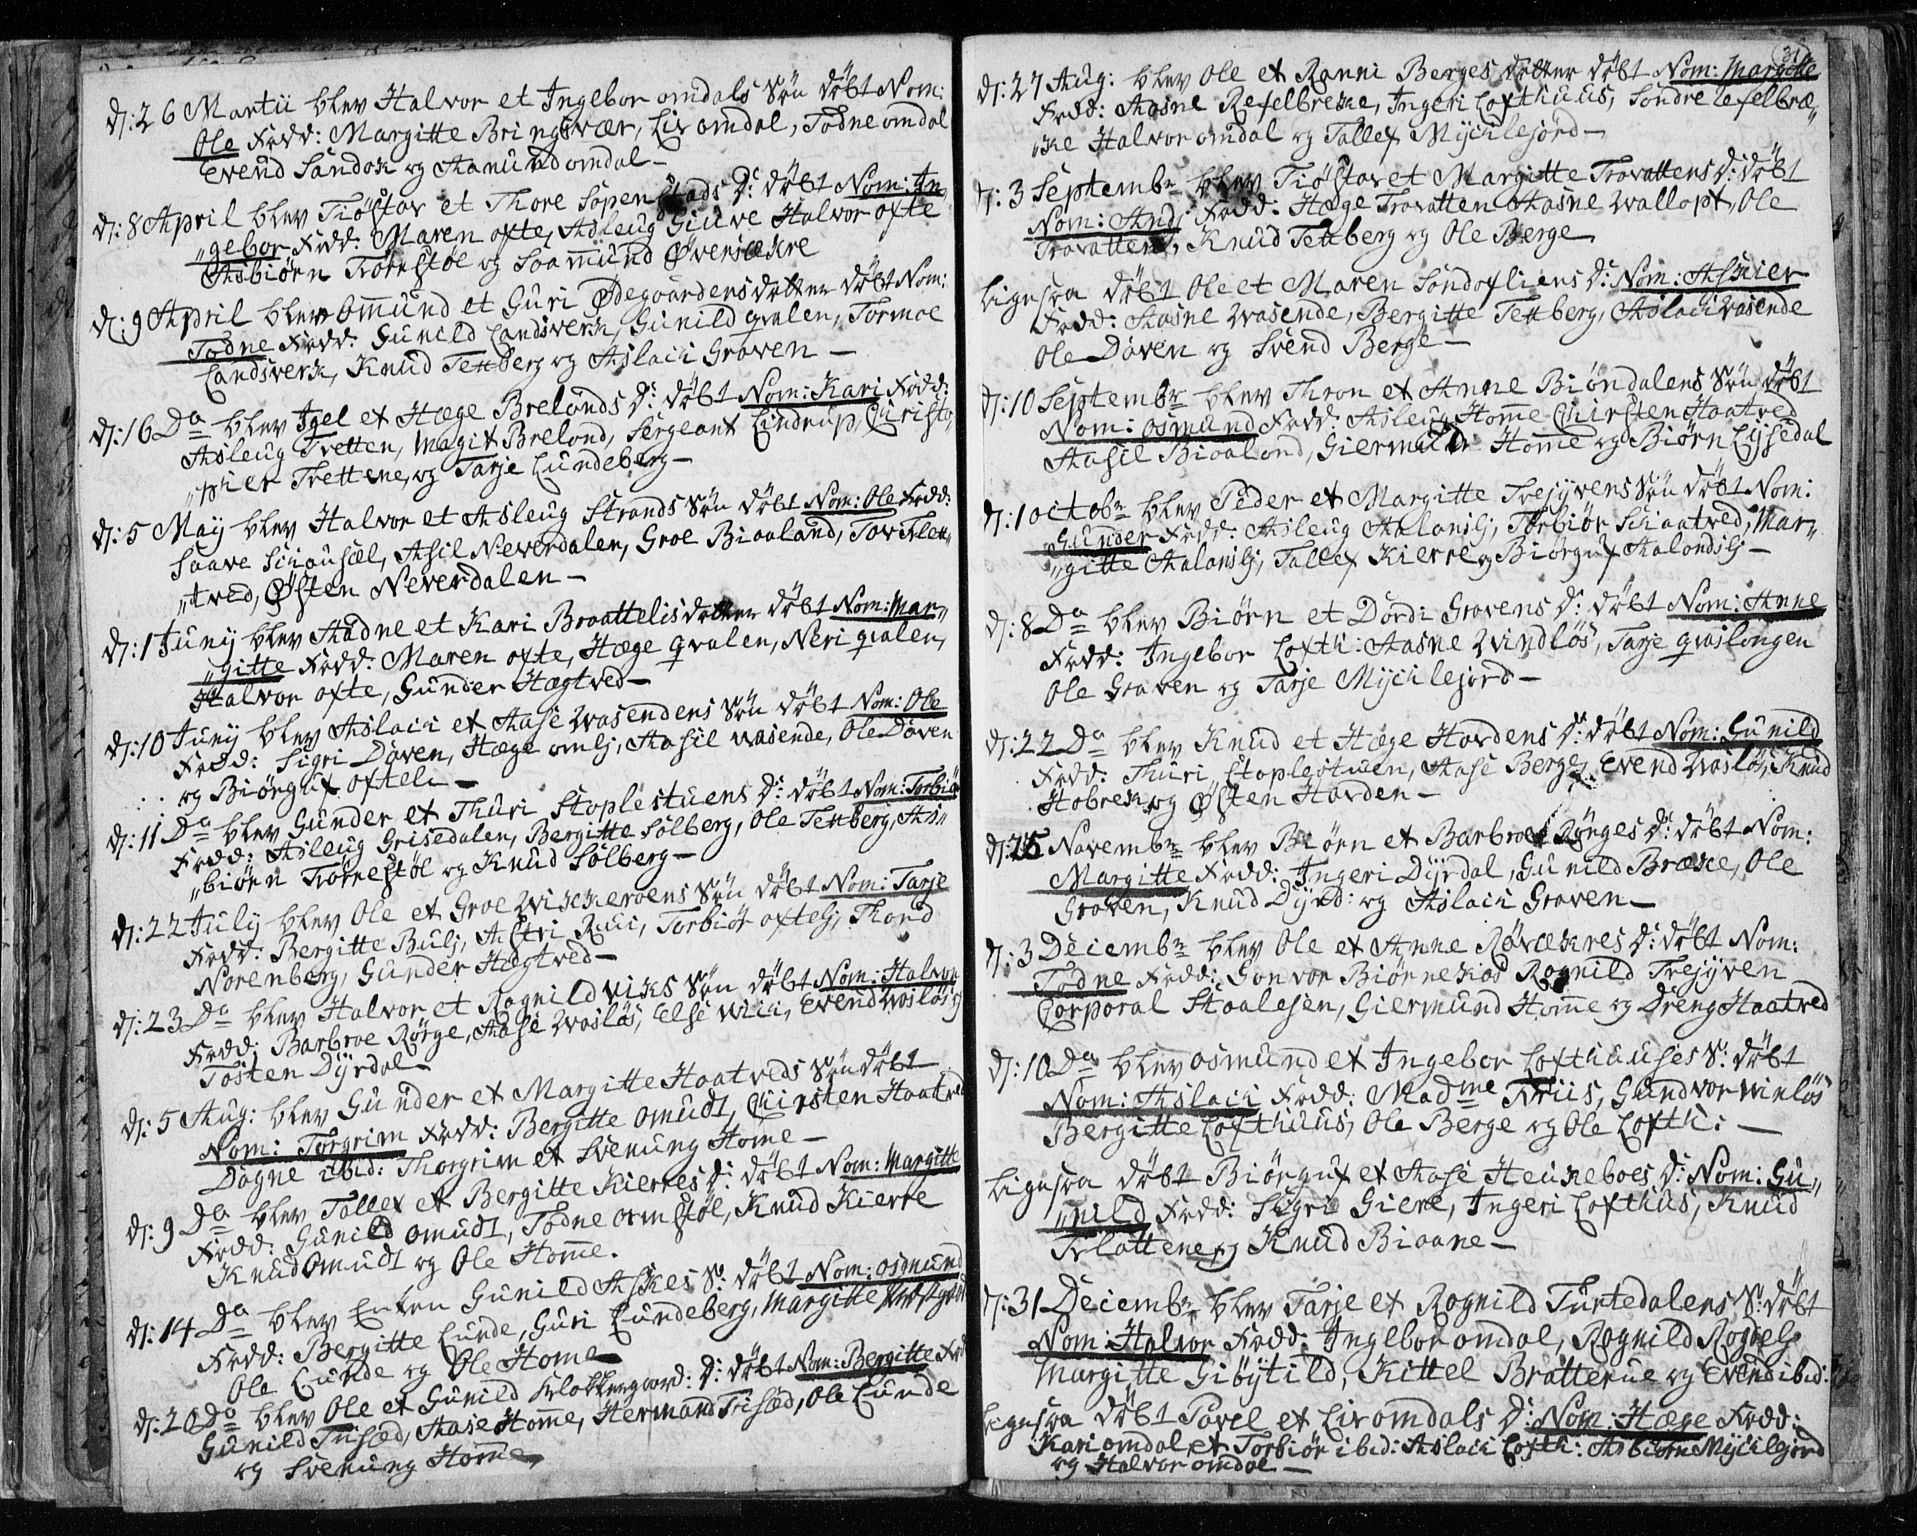 d: 26 Martii blev Halvor et Ingebor omdals Søn døbt Nom:
Ole Fadd: Margitte Bringsvær, Liv omdal, Todne omdal
Evend Sandok og Aanund omdal —
d: 8 April blev Tiøstav et Thore Sopenstads D: døbt Nom: In„
„gebor Fadd: Maren ofte, Asleug Giuve Halvor ofte
Asbiørn Trornstøl og Saamund Øversækre
d: 9 April blev omund et Guri Ødegaardens datter døbt Nom:
Todne Fadd: Gunild Landsverk, Gunild qvalen, Tormoe
Landsverk, Knud Tettberg og Aslach Graven —
d: 16 Do blev Igel et Hæge Brelands D: døbt Nom: Kari Fadd:
Asleug Tvetten, Magit Breland, Sergeant Lindrup, Christo„
„pher Trettene, og Tarje Lundeberg —
d: 5 May blev Halvor et Asleug Strands Søn døbt Nom: Ole Fadd:
Saave Schousæl, Asil Neverdalen, Groe Biaaland, Tov Flek„
„tved, Østen Neverdalen —
d: 1 Juny blev Aadne et Kari Braattelis datter døbt Nom: Mar„
„gitte Fadd: Maren ofte, Hæge qvalen, Neri qvalen,
Halvor ofte, Gunder Hægtved —
d: 10 Juny blev Aslach et Aase Vasendens Søn døbt Nom: Ole
Fadd: Sigri Døven, Hæge omlj, Aasil vasende, Ole Døven
og Biørguf ofteli —
d: 11 Do blev Gunder et Thuri Stoplestuens D: døbt Nom: Torbiør
Fadd: Asleug Grisedalen, Bergitte Solberg, Ole Tettberg, As„
„biørn Trornestøl og Knud Solberg —
d: 22 July blev Ole et Groe Vikkeroens Søn døbt Nom: Tarje
Fadd: Bergitte Bulj, Astri Rui, Torbiør oftelj, Thord
Norenberg, Gunder Hægtved —
d: 23 Do blev Halvor et Rognild Viks Søn døbt Nom: Halvor
Fadd: Barbroe Rørge, Aase Vasløs, Else Wich, Evend Vasløs og
Tosten Dyrdal —
d: 5 Aug: blev Gunder et Margitte Haatveds Søn døbt
Nom: Torgrim Fadd: Bergitte omudt, Chirsten Haatved
Dagne ibid: Thorgrim et Svenung Home —
d: 9 Do blev Tallef et Bergitte Kierres D: døbt Nom: Margitte
Fadd: Gunild omudt, Todne ormstøl, Knud Kierre
Knud omudt og Ole Home.
d: 14 Do blev Enken Gunild Askes S: døbt Nom: osmund
Fadd: Bergitte Lunde, Guri Lundeberg, Margitte Præstgrd:
Ole Lunde og Ole Home
d: 20 Do blev Ole et Gunild Klokkergaard: D: døbt Nom: Bergitte Fad
Gunild Trisæd, Aase Home, Herman Trisæd, Ole Lunde
og Svenung Home
31
d: 27 Aug: blev Ole et Ranni Berges datter døbt Nom: Margitte
Fadd: Aasne Refelbreke, Ingeri Lofthuus, Sondre Refelbræ„
„ke Halvor omdal og Tallef Mychlejord —
d: 3 Septembr blev Tiøstav et Margitte Travattens D: døbt
Nom: And: Fadd: Hæge Travatten Aasne Valloft, Ole
Travatten, Knud Tettberg og Ole Berge
Ligesaa døbt Ole et Maren Sondofliens D: Nom: Askier
Fadd: Aasne Vasende, Bergitte Tettberg, Aslach Vasende
Ole Døven og Svend Berge —
d: 10 Septembr blev Thron et Anne Biøndalens Søn døbt
Nom: osmund Fadd: Asleug Home Chirsten Haatved
Aasil Biaaland, Giermund Home og Biørn Lysedal
d: 1 octobr blev Peder et Margitte Trejyvens Søn døbt Nom:
Gunder Fadd: Asleug Aalanslj, Torbiør Schaatved, Mar„
„gitte Aalanslj, Tallef Kierre og Biørguf Aalandslj —
d: 8 Do blev Biørn et Dordi Gravens D: døbt Nom: Anne
Fadd: Ingebor Lofth: Aasne Vindløs, Tarje qvaslongen
Ole Graven og Tarje Mychlejord —
d: 22 Do blev Knud et Hæge Hardens D: døbt Nom: Gunild
Fadd: Thuri Stoplestuen, Aase Berge, Evend Vasløs, Knud
Hobrek og Østen Harden —
d: 25 Novembr blev Biørn et Barbroe Rønges D: døbt Nom:
Margitte Fadd: Ingeri Dyrdal, Gunild Bræke, Ole
Graven, Knud Dyrd: og Aslach Graven —
d: 3 Decembr blev Ole et Anne Røvækres D: døbt Nom:
Todne Fadd: Gonvor Biørnekos Rognild Trejyven
Corporal Staalesen, Giermund Home og Dreng Haatved
d: 10 Do blev osmund et Ingebor Lofthuuses S: døbt
Nom: Aslach Fadd: Madme Friis, Gundvor Winløs
Bergitte Lofthuus, Ole Berge og Ole Lofth: —
Ligesaa døbt Biørguf et Aase Heukeboes D: Nom: Gu„
„nild Fadd: Sigri Giere, Ingeri Lofthus, Knud
Trlattene og Knud Biaane —
d: 31 Decembr blev Tarje et Rognild Turtedalens S: døbt
Nom: Halvor Fadd: Ingebor omdal, Rognild
Margitte Giøytild, Kittel Bratterue og Evend ibid:
Ligesaa døbt Povel et Liv omdals D: Nom: Hæge Fadd:
Kari omdal et Torbiør ibid: Aslach Lofth: Asbiørn Mychlejord
og Halvor omdal —